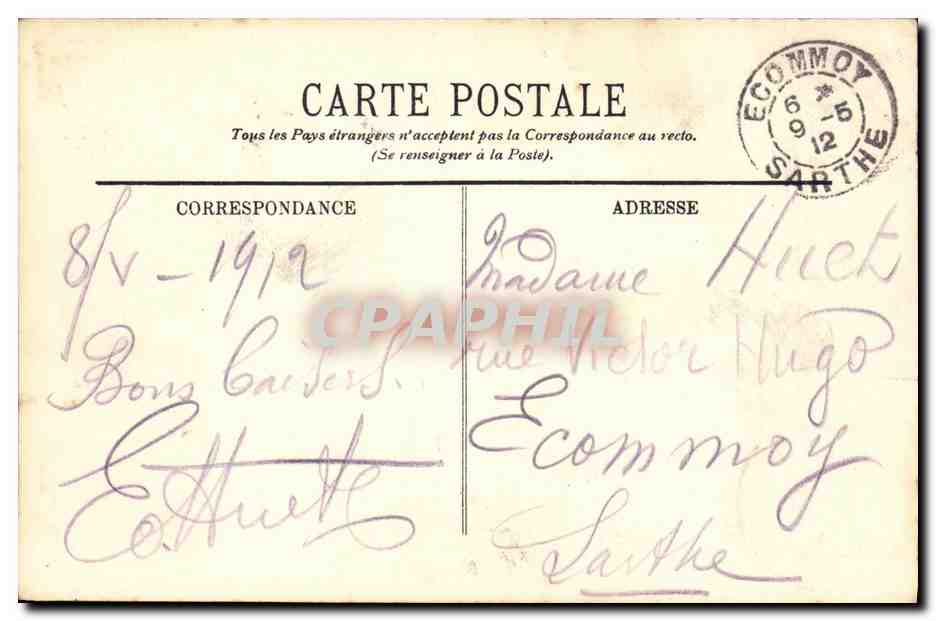 CARTE POSTALE
Tous les Pays étrangers n'acceptent pas la Correspondance au recto.
(Se renseigner à la Poste).
ECOMMOY
6 * 
9 -5
12
SARTHE
CORRESPONDANCE
8/V - 1912
Bons Baisers.
Huet
ADRESSE
Madame Huet
rue Victor Hugo
Ecommoy
Sarthe
CPAPHIL